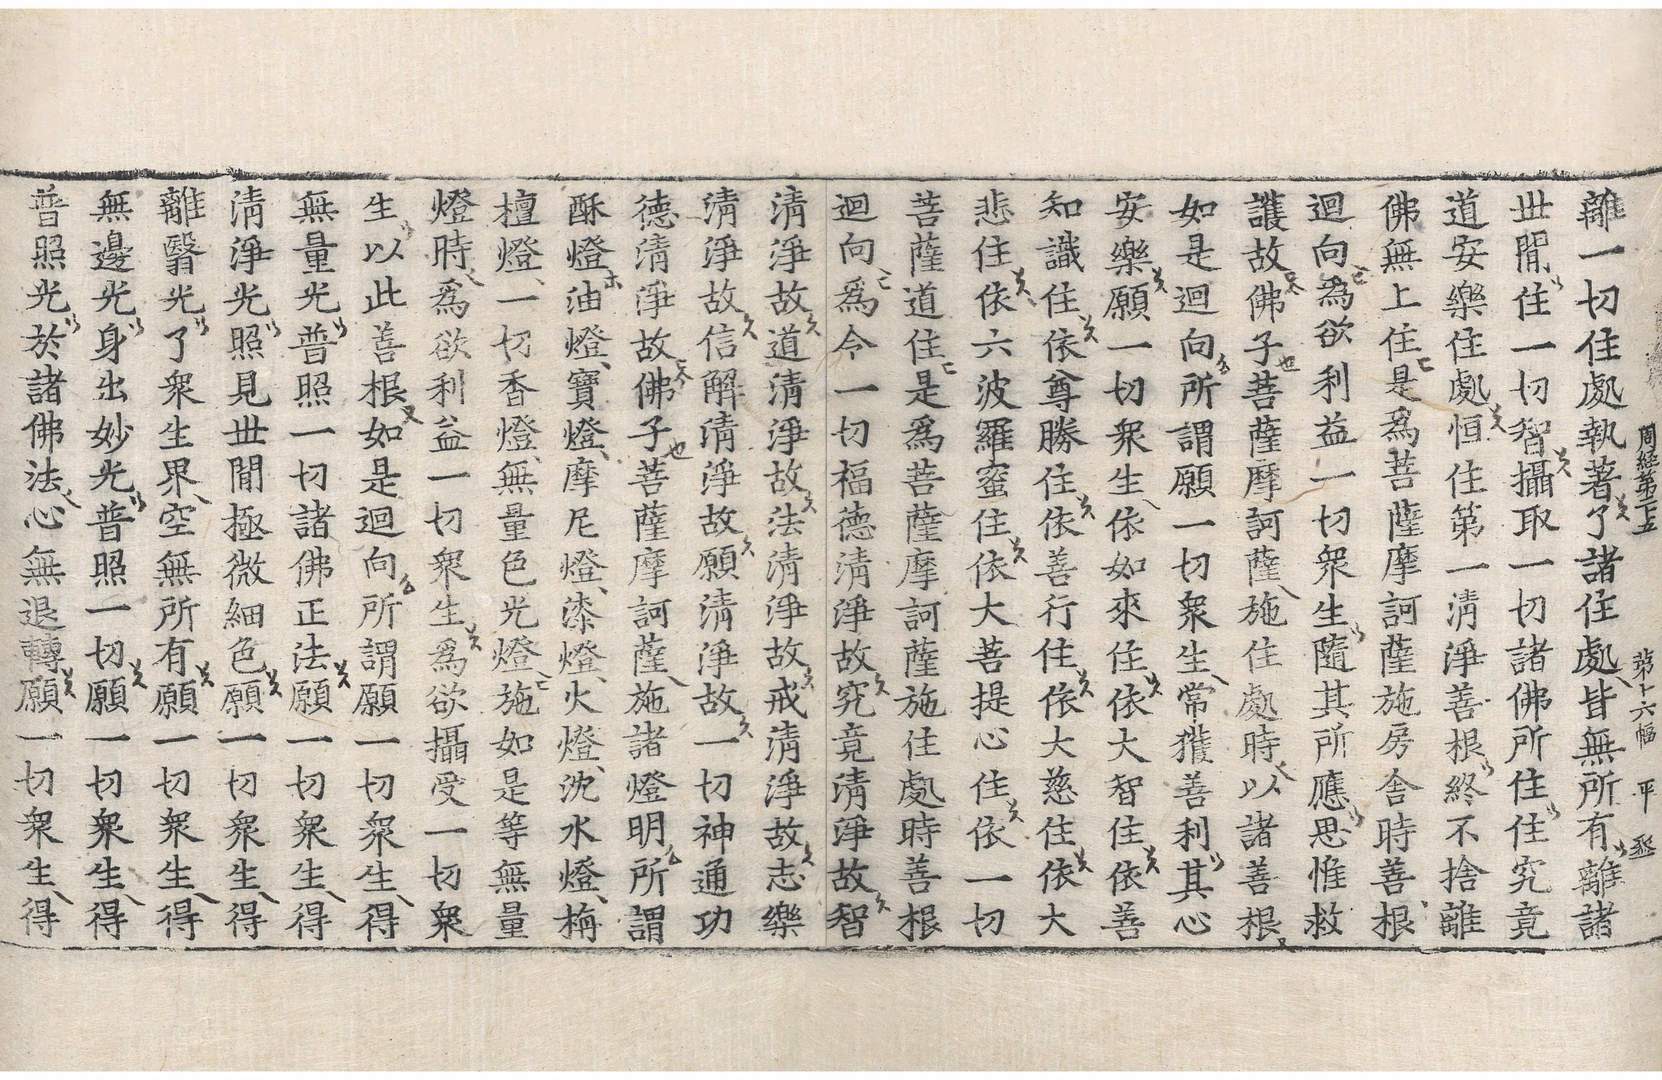 周經第二十五 第十六幅 平 丞
離一切住處執著了諸住處皆無所有離諸
世間住一切智攝取一切諸佛所住住究竟
道安樂住處恒住第一清淨善根終不捨離
佛無上住是爲菩薩摩訶薩施房舍時善根
迴向爲欲利益一切衆生隨其所應思惟救
護故佛子菩薩摩訶薩施住處時以諸善根
如是迴向所謂願一切衆生常獲善利其心
安樂願一切衆生依如來住依大智住依善
知識住依尊勝住依善行住依大慈住依大
悲住依六波羅蜜住依大菩提心住依一切
菩薩道住是爲菩薩摩訶薩施住處時善根
迴向爲令一切福德清淨故究竟清淨故智
清淨故道清淨故法清淨故戒清淨故志樂
清淨故信解清淨故願清淨故一切神通功
德清淨故佛子菩薩摩訶薩施諸燈明所謂
酥燈油燈寶燈摩尼燈漆燈火燈沈水燈栴
檀燈一切香燈無量色光燈施如是等無量
燈時爲欲利益一切衆生爲欲攝受一切衆
生以此善根如是迴向所謂願一切衆生得
無量光普照一切諸佛正法願一切衆生得
清淨光照見世間極微細色願一切衆生得
離翳光了衆生界空無所有願一切衆生得
無邊光身出妙光普照一切願一切衆生得
普照光於諸佛法心無退轉願一切衆生得